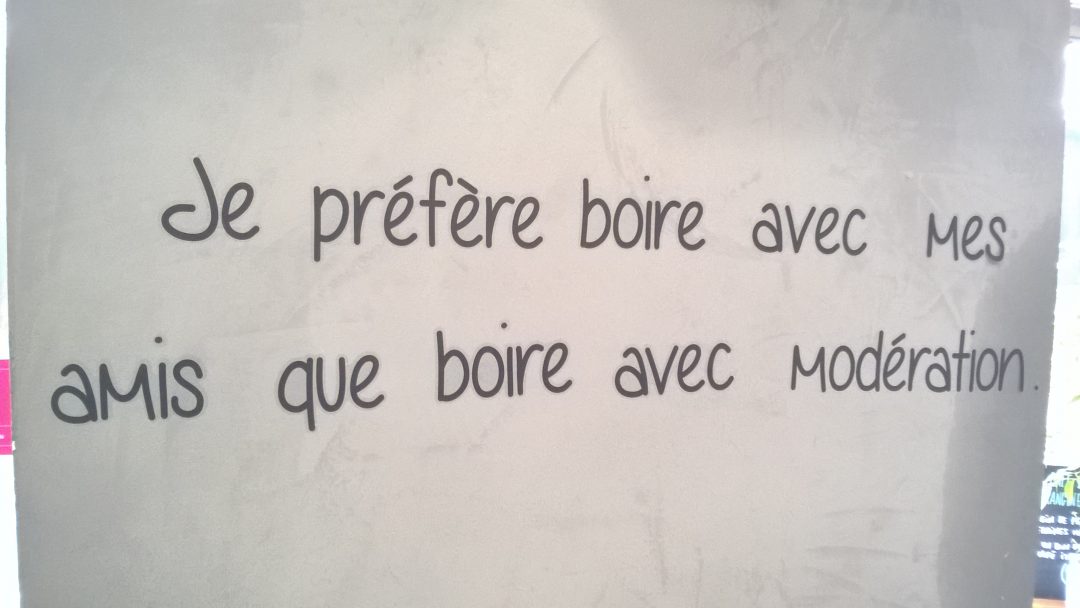 Je préfère boire avec mes
amis que boire avec modération.